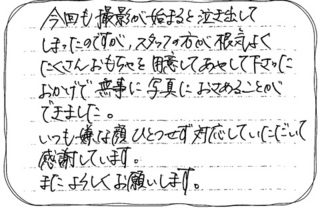 今回も撮影が始まると泣き出して
しまったのですが、スタッフの方が根気よく
たくさんおもちゃを用意してあやして下さった
おかげで無事に写真におさめることが
できました。
いつも嫌な顔ひとつせず対応していただいて
感謝しています。
またよろしくお願いします。